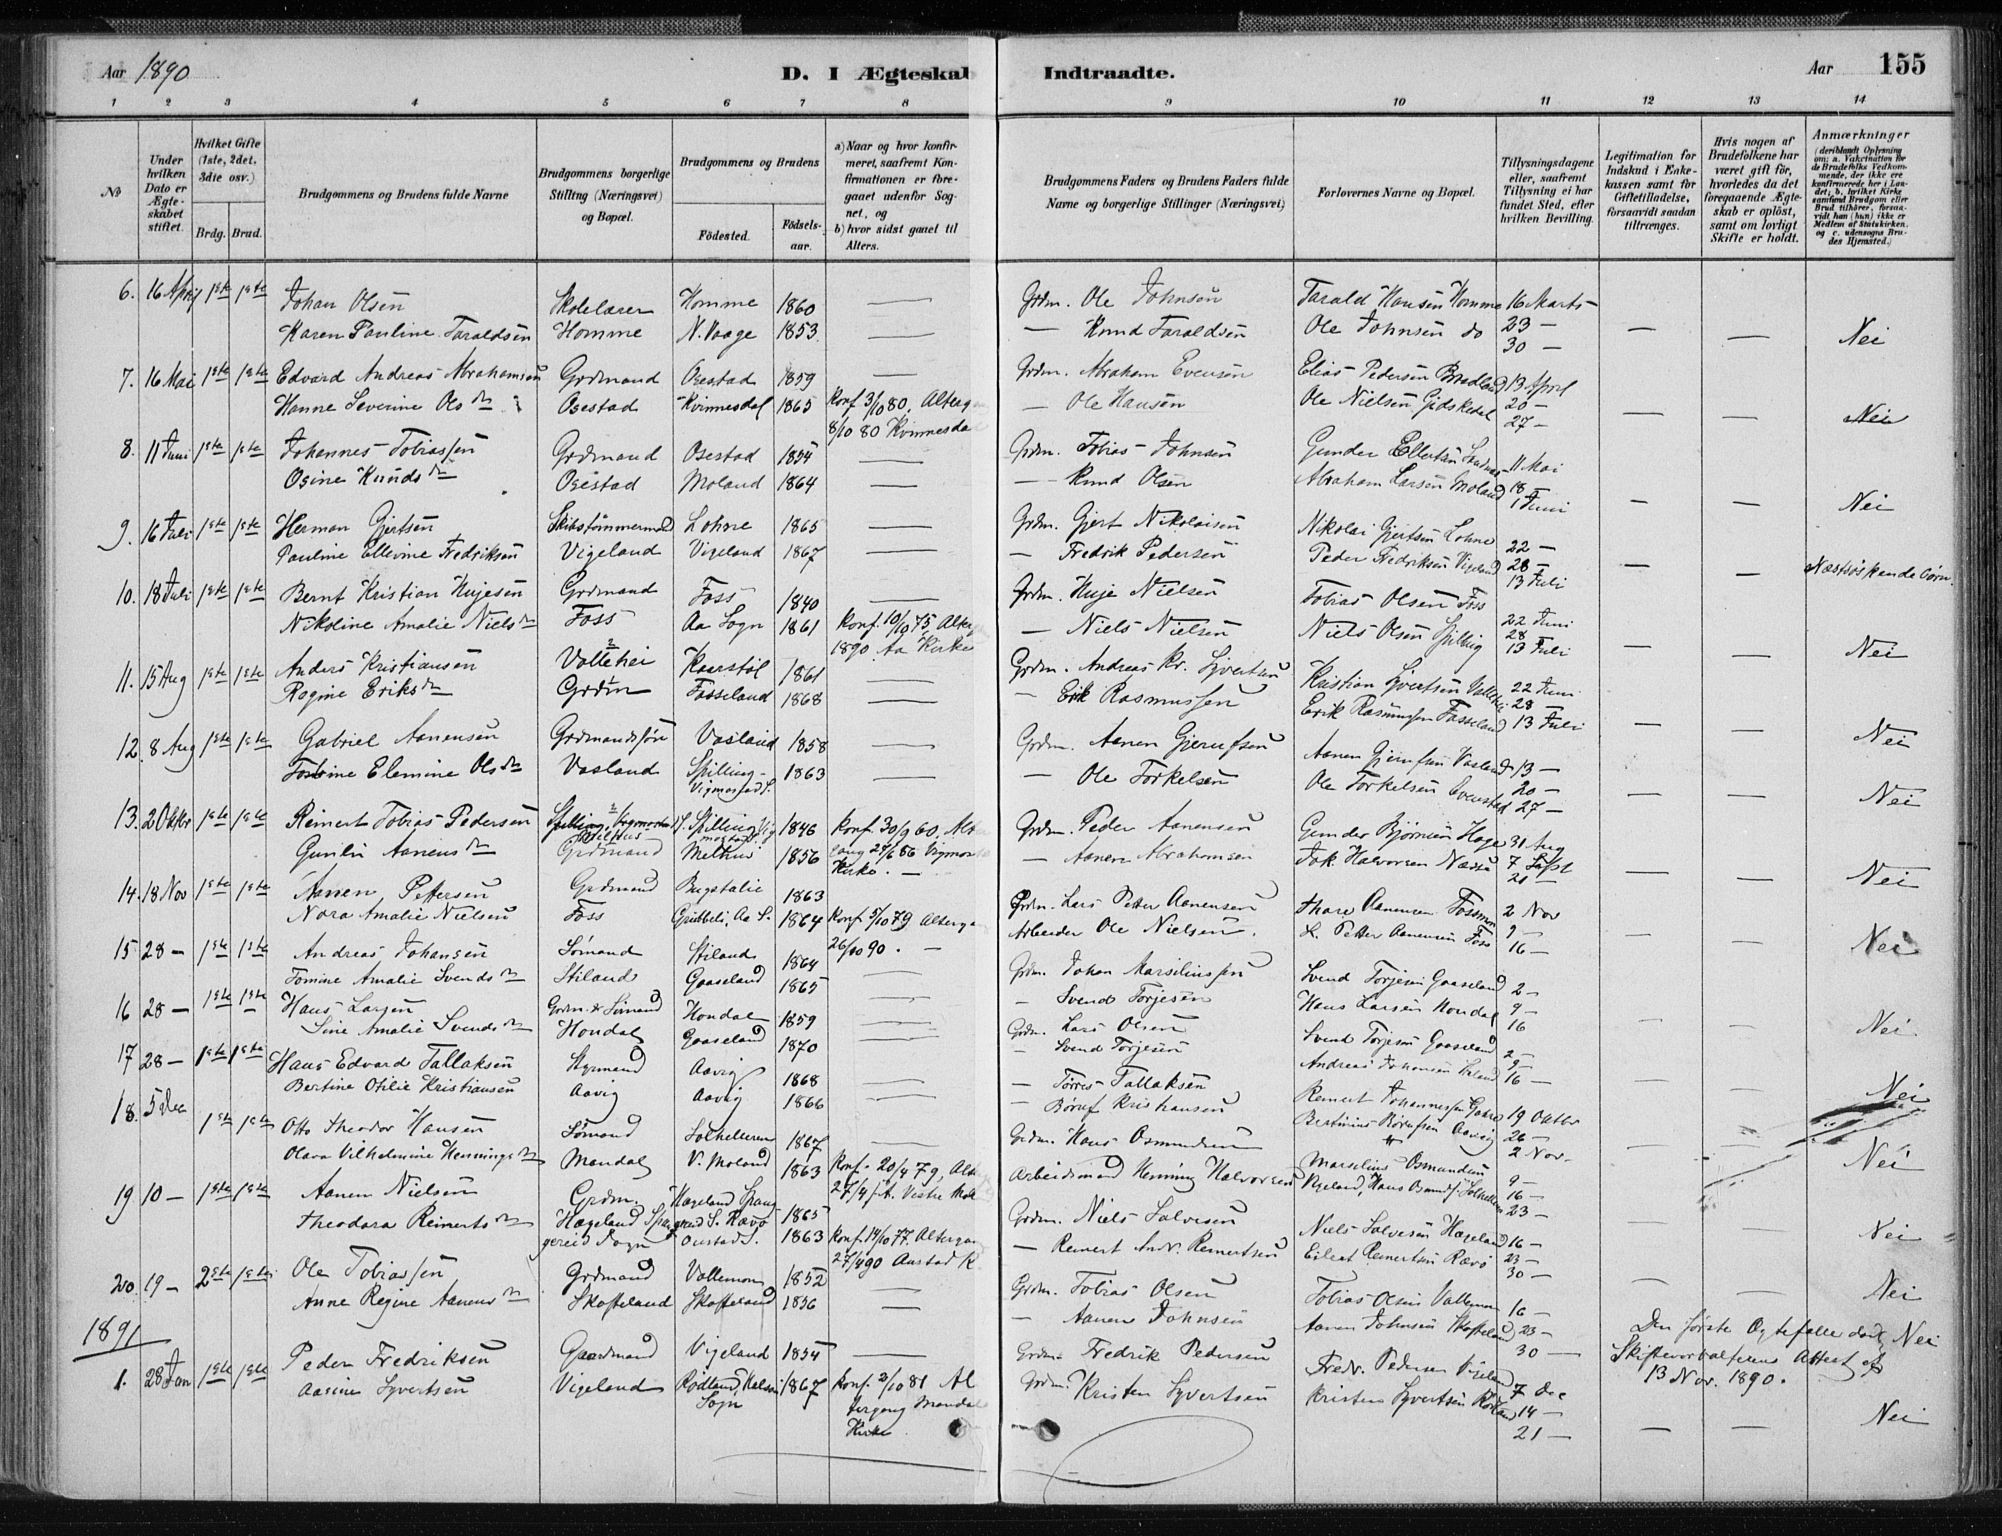 Aar 1890
D. I Ægteskab Indtraadte.
Aar 155
1 2 3 4 5 6 7 8 9 10 11 12 13 14
No
Under hvilken Dato er Ægteskabet stiftet.
Hvilket Gifte (1ste, 2det, 3die osv.)
Brdg. Brud.
Brudgommens og Brudens fulde Navne
Brudgommens borgerlige Stilling (Næringsvei) og Bopæl.
Brudgommens og Brudens
Födested.
Födselsaar.
a) Naar og hvor konfirmeret, saafremt Konfirmationen er foregaaet udenfor Sognet, og
b) hvor sidst gaaet til Alters.
Brudgommens Faders og Brudens Faders fulde Navne og borgerlige Stillinger (Næringsvei)
Forlovernes Navne og Bopæl.
Tillysningsdagene eller, saafremt Tillysning ei har fundet Sted, efter hvilken Bevilling.
Legitimation for Indskud i Enkekassen samt for Giftetilladelse, forsaavidt saadan tiltrænges.
Hvis nogen af Brudefolkene har været gift för, hvorledes da det foregaaende Ægteskab er oplöst, samt om lovligt Skifte er holdt.
Anmærkninger (deriblandt Oplysning om: a. Vakcination for de Brudefolks Vedkommende, der ikke ere konfirmerede her i Landet; b. hvilket Kirkesamfund Brudgom eller Brud tilhörer, forsaavidt han (hun) ikke er Medlem af Statskirken, og c. udensogns Brudes Hjemsted.)
6. 16 April 1ste 1ste Johan Olsen Skolelærer Homme 1860 — Grdm. Ole Johnsen Tarald Hansen Homme 16 Marts
Karen Pauline Taraldsen Homme N. Vaage 1853 — — Knud Taraldsen Ole Johnsen do 23 — — — Nei
30 —
7. 16 Mai 1ste 1ste Edvard Andreas Abrahamsen Grdmand Osestad 1859 — Grdm. Abraham Evensen Elias Pedersen 13 April
Hanne Severine Olsdtr Osestad Kvinnesdal 1865 Konf 3/10 80, Alterg — Ole Hansen Ole Nielsen Gidskedal 20 — — — Nei
8/10 80 Kvinnesda 27 —
8. 11 Juni 1ste 1ste Johannes Tobiassen Grdmand Osestad 1854 — Grdm. Tobias Johnsen Gunder Ellertsen 11 Mai
Osine Knudsdtr Osestad Moland 1864 — — Knud Olsen Abraham Larsen Moland 18 — — — Nei
1 Juni
9. 16 Juli 1ste 1ste Herman Gjertsen Skibstömmermd Lohne 1865 — Grdm. Gjert Nikolaisen Nikolai Gjertsen Lohne 22 —
Pauline Ellevine Fredriksen Vigeland Vigeland 1867 — — Fredrik Pedersen Peder Fredriksen Vigeland 28 — — — Næstsöskendebörn.
13 Juli
10. 18 Juli 1ste 1ste Bernt Kristian Hujesen Grdmand Foss 1840 — Grdm. Huje Nielsen Tobias Olsen Foss 22 Juni
Nikoline Amalie Nielsdtr Foss Aa Sogn 1861 Konf. 10/10 75, Alterg — Niels Nielsen Niels Olsen Spilling 28 — — Nei
1890 Aa Kirke 13 Juli
11. 15 Aug 1ste 1ste Anders Kristiansen Vollehei Kaarstøl 1861 — Grdm. Andreas Kr. Syvertsen Kristian Syvertsen 22 Juni
Rogine Eriksdtr Grdm Fasseland 1868 — — Erik Rasmussen Erik Rasmussen Fasseland 28 — — — Nei
13 Juli
12. 8 Aug 1ste 1ste Gabriel Aanensen Grdmandssön Vasland 1858 — Grdm. Aanen Gjerufsen Aanen Gjerufsen Vasland 13 —
Elemine Olsdtr Vasland Spilling Vigmostad S. 1863 — — Ole Torkelsen Ole Torkelsen 20 — — — Nei
27 —
13. 2 Oktbr 1ste 1ste Reinert Tobias Pedersen Spilling Vigmostad S. Spilling Vigmostad S. 1846 Konf. 30/9 60, Alter Grdm. Peder Aanensen Gunder Björnsen Hage 31 Aug
Gunild Aanensdtr Grdmand Melhus 1856 gang 27/6 86 Vigmosta — Aanen Abrahamsen Jak. Halvorsen Næsse 7 Sept — — Nei
Kirke. — 21 —
14. 18 Nov 1ste 1ste Aanen Pettersen Grdmand Bugstalie 1863 Grdm. Lars Petter Aanensen Thore Aanensen Fossmon 2 Nov
Nora Amalie Nielsen Foss Gribbeli, Aa S. 1864 Konf 5/10 79 Alterga Arbeider Ole Nielsen. L. Petter Aanensen Foss 9 — — — Nei
26/10 90. — 16 —
15 28 — 1ste 1ste Andreas Johansen Sömand Stiland 1864 — Grdm. Johan Marsiliussen Svend Torjesen Gaaseland 2 —
Tomine Amalie Svendsdtr Stiland Gaaseland 1865 — — Svend Torjesen Hans Larsen Hondal 9 — — — Nei
16
16 28 — 1ste 1ste Hans Larsen Grdm. & Sömand Hondal 1859 — Grdm. Lars Olsen Svend Torjesen Gaaseland 2 —
Sine Amalie Svendsdtr Hondal Gaaseland 1870 — — Svend Torjesen Andreas Johansen Stiland 9 — — — Nei
16 —
17 28 — 1ste 1ste Hans Edvard Tallaksen Styrmand Aavig 1868 — — Torres Tallaksen Reinert Johannessen 19 Oktbr
Bertine Otilie Kristiansen Aavig Aavig 1866 — — Böruf Kristiansen Bertinius Börufsen Aavig 26 — — Nei
2 Nov.
18. 5 Dec 1ste 1ste Otto Theodor Hansen Sömand Solhelleren 1867 — Grdm. Hans Osmundsen Marselius Osmundsen 9 —
Olava Vilhelmine Henningsdtr Mandal V. Moland 1863 Konf. 20/4 79, Alterg Arbeidsmand Henning Halvorsen Vigeland, Hans Osmunds. Solhelleren 16 —
27/4 s. A. Vestre Mol 23 —
19 10 — 1ste 1ste Aanen Nielsen Grdm. Hægeland 1865 Grdm. Niels Salvesen Niels Salvesen Hægeland 16 —
Theodora Reinertsdtr Hægeland Sogn S. Rævø Oustad S. 1863 Konf. 14/10 77. Altergang — Reinert Andr. Reinertsen Eilert Reinertsen Rævø 23 — Nei
27/4 90 Austad K. 30 —
20. 19 — 2det 1ste Ole Tobiassen Grdmand Vollemon 1852 — Grdm. Tobias Olsen Tobias Olsen Vollemon 16 — — — Nei
Anne Regine Aanensdtr Skofteland Skofteland 1856 — — Aanen Johnsen Aanen Johnsen Skofteland 23 — Den förste Ægtefælle död, Nei
30 — Skifteforvalterens Attest af
13 Nov. 1890.
1891
1. 28 Jan 1ste 1ste Peder Fredriksen Gaardmand Vigeland 1854 — Grdm. Fredrik Pedersen Fredr. Pedersen Vigeland 7 Dec
Aasine Syvertsen Vigeland Rödland, Halsaa Sogn 1867 Konf. 2/10 81 Al Grdm. Kristen Syvertsen Kristen Syvertsen Rödland 14 — — — Nei
tergang Mandal 21 —
Kirke